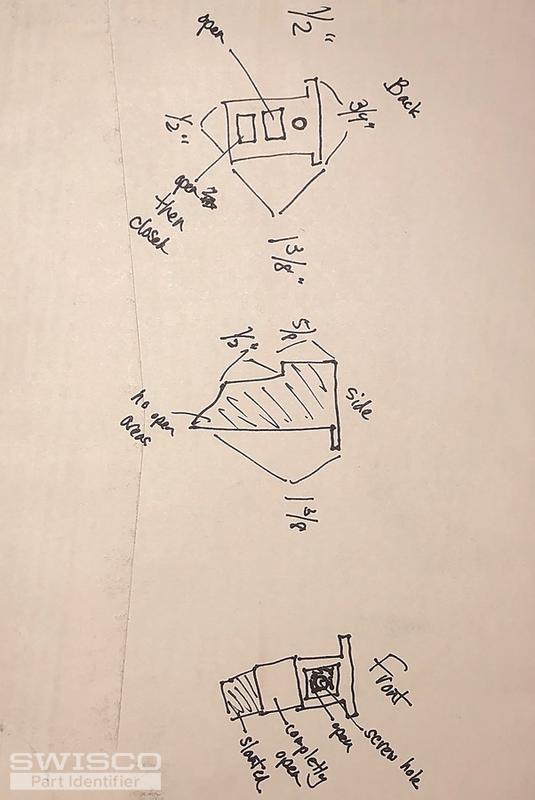 1/2"
Back
open
3/4"
1/2"
open
then
closed
1 3/8"
side
5/8
1/2"
no open
areas
1 3/8
Front
screw hole
open
completly
open
slanted
SWISCO
Part Identifier